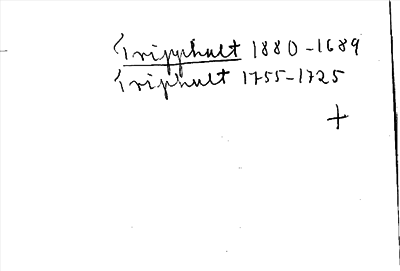 Tripphult 1880-1689
Triphult 1755-1725
+